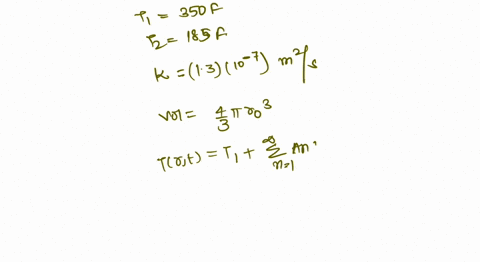 T₁ = 350 F
T₂ = 185 F
K = (1.3)(10⁻⁷) m²/s
Vol = 4/3 π r₀³
T(r,t) = T₁ + ∞∑n=1 An